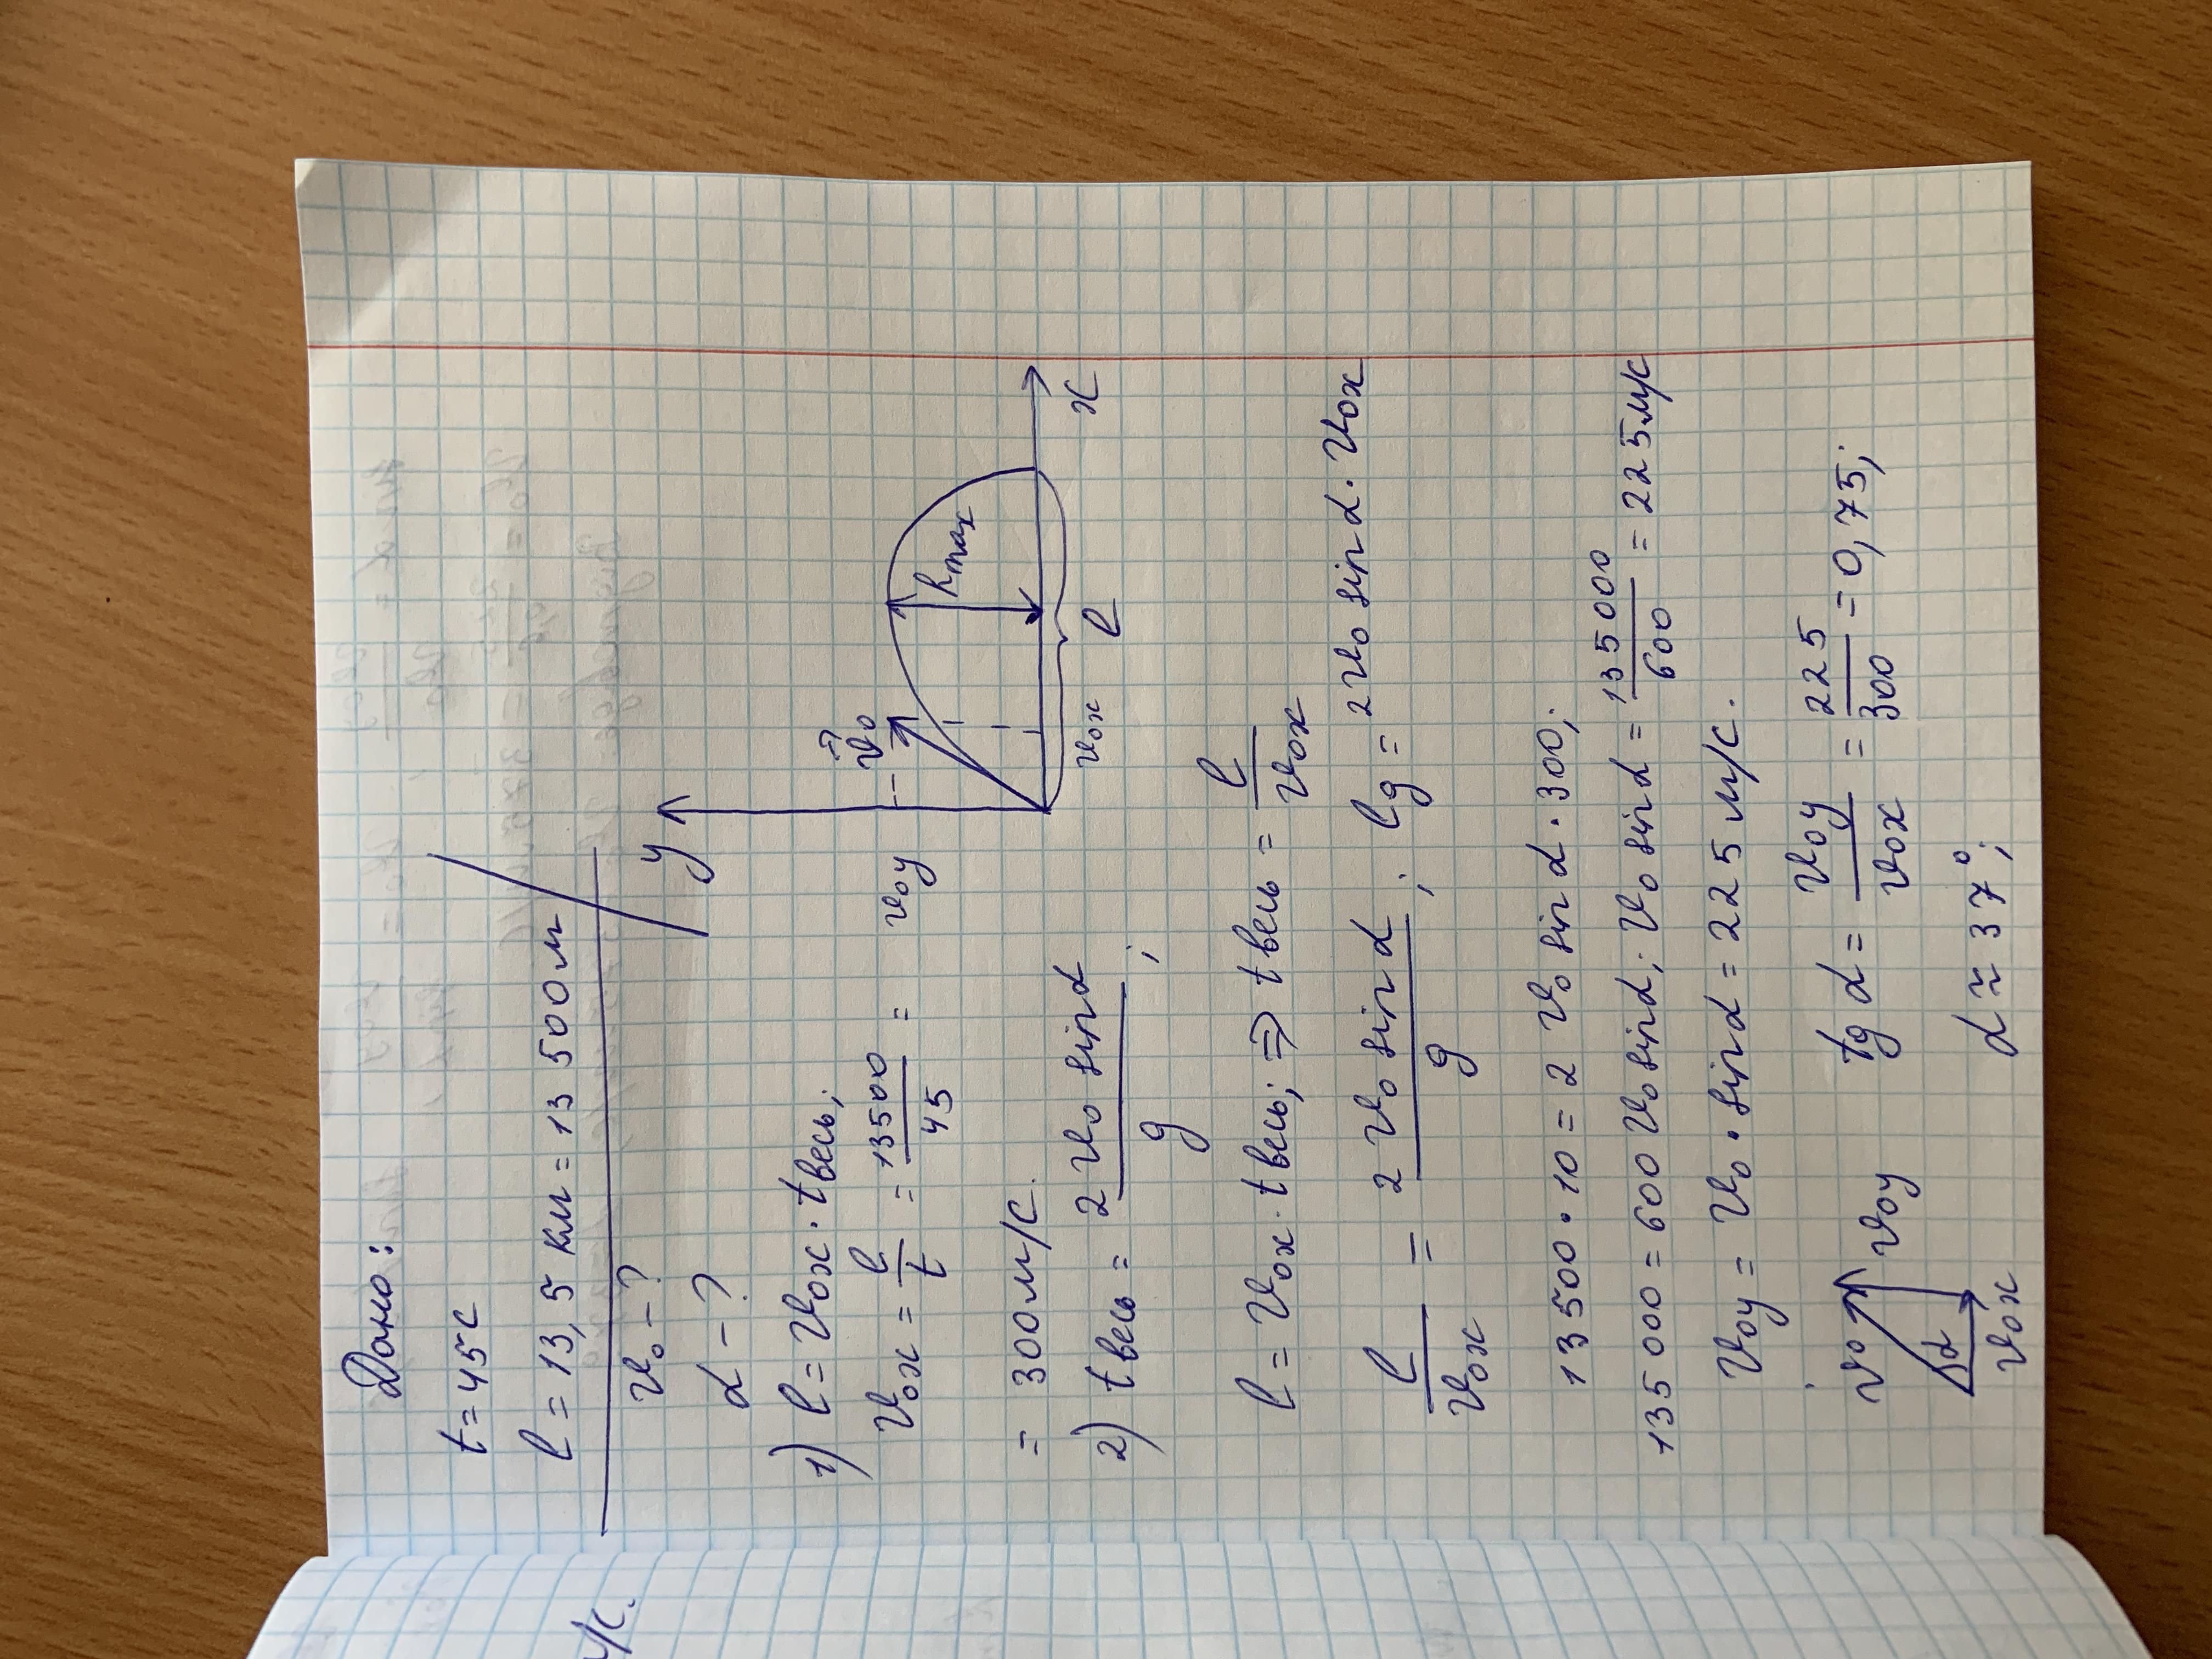 Дано:
t = 45 с
l = 13,5 км = 13 500 м
v₀ - ?
α - ?
y
v⃗₀
hmax
v₀y
v₀x
l
x
1) l = v₀x · tвесь;
v₀x = l/t = 13500/45 =
= 300 м/с.
2) tвесь = 2 v₀ sin α / g ;
l = v₀x · tвесь; ⇒ tвесь = l/v₀x
l/v₀x = 2 v₀ sin α / g ; lg = 2 v₀ sin α · v₀x
13 500 · 10 = 2 v₀ sin α · 300;
135 000 = 600 v₀ sin α; v₀ sin α = 135 000/600 = 225 м/с
v₀y = v₀ · sin α = 225 м/с.
v₀
v₀y
α
v₀x
tg α = v₀y/v₀x = 225/300 = 0,75;
α ≈ 37°;
м/с.